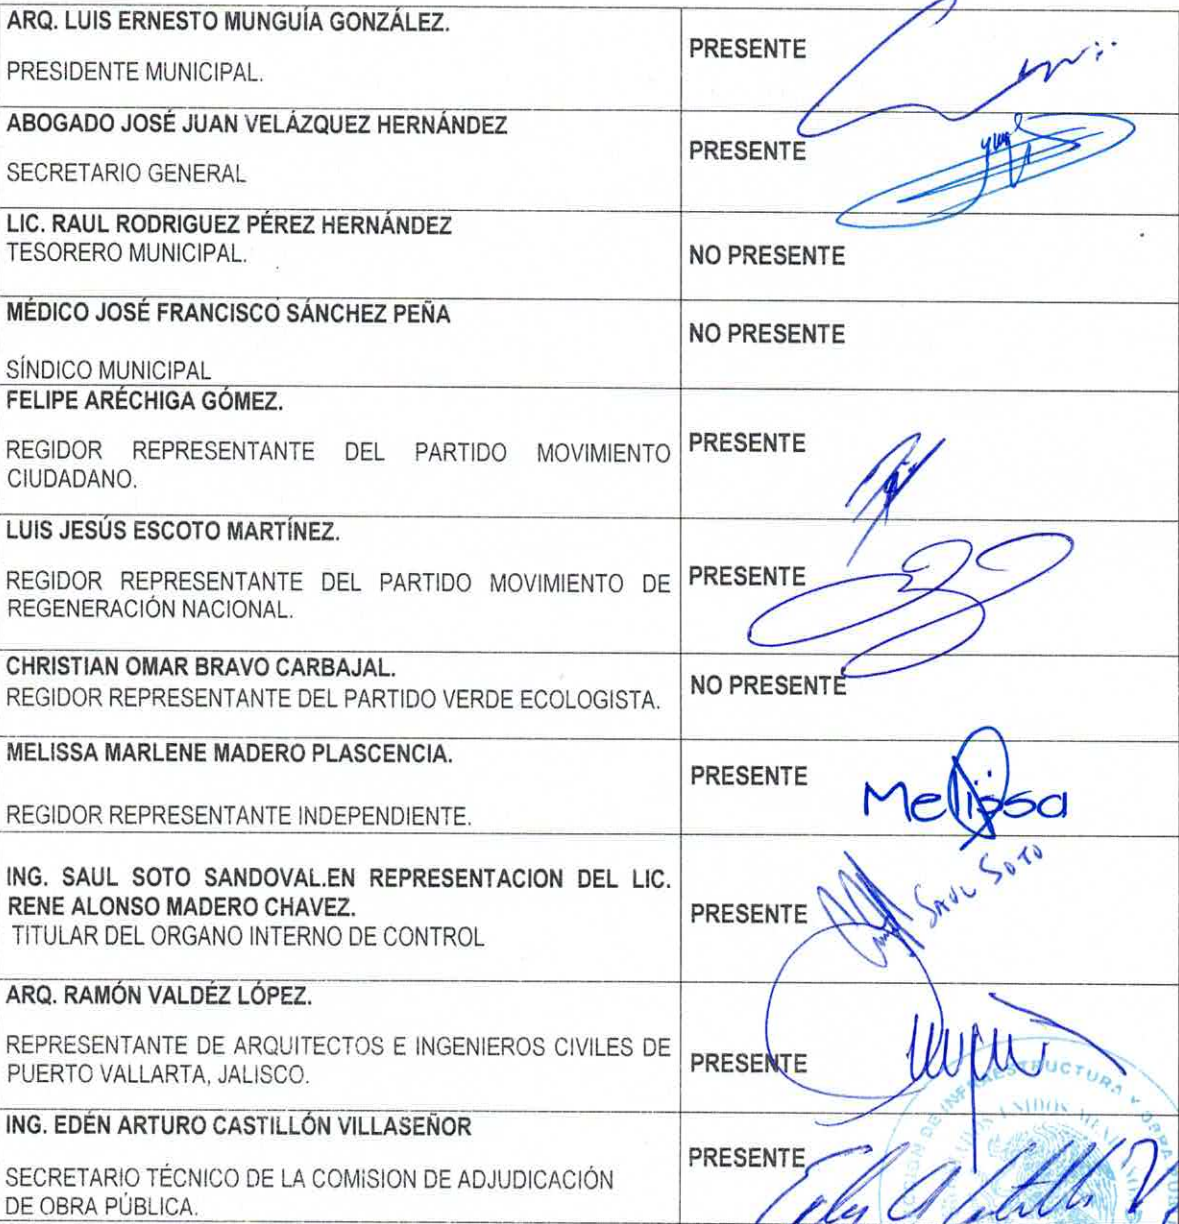 ARQ. LUIS ERNESTO MUNGUÍA GONZÁLEZ.
PRESIDENTE MUNICIPAL.
PRESENTE
ABOGADO JOSÉ JUAN VELÁZQUEZ HERNÁNDEZ
SECRETARIO GENERAL
PRESENTE
LIC. RAUL RODRIGUEZ PÉREZ HERNÁNDEZ
TESORERO MUNICIPAL.
NO PRESENTE
MÉDICO JOSÉ FRANCISCO SÁNCHEZ PEÑA
SÍNDICO MUNICIPAL
NO PRESENTE
FELIPE ARÉCHIGA GÓMEZ.
REGIDOR REPRESENTANTE DEL PARTIDO MOVIMIENTO
CIUDADANO.
PRESENTE
LUIS JESÚS ESCOTO MARTÍNEZ.
REGIDOR REPRESENTANTE DEL PARTIDO MOVIMIENTO DE
REGENERACIÓN NACIONAL.
PRESENTE
CHRISTIAN OMAR BRAVO CARBAJAL.
REGIDOR REPRESENTANTE DEL PARTIDO VERDE ECOLOGISTA.
NO PRESENTE
MELISSA MARLENE MADERO PLASCENCIA.
REGIDOR REPRESENTANTE INDEPENDIENTE.
PRESENTE
Melissa
ING. SAUL SOTO SANDOVAL.EN REPRESENTACION DEL LIC.
RENE ALONSO MADERO CHAVEZ.
TITULAR DEL ORGANO INTERNO DE CONTROL
PRESENTE
SAUL SOTO
ARQ. RAMÓN VALDÉZ LÓPEZ.
REPRESENTANTE DE ARQUITECTOS E INGENIEROS CIVILES DE
PUERTO VALLARTA, JALISCO.
PRESENTE
ING. EDÉN ARTURO CASTILLÓN VILLASEÑOR
SECRETARIO TÉCNICO DE LA COMISION DE ADJUDICACIÓN
DE OBRA PÚBLICA.
PRESENTE
DE INFRAESTRUCTURA Y OBRA